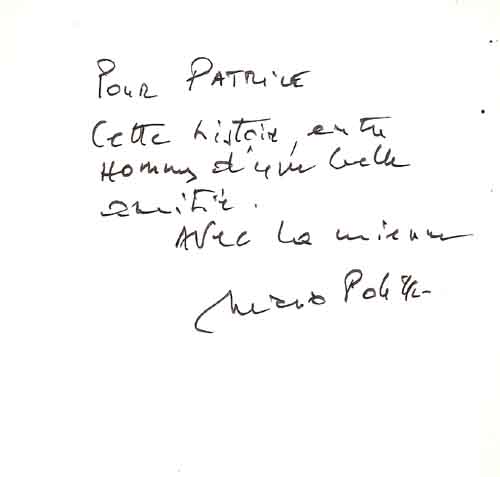 Pour PATRICE
Cette histoire, entre
Hommes d'une belle
amitié.
AVEC la mienne
Mario